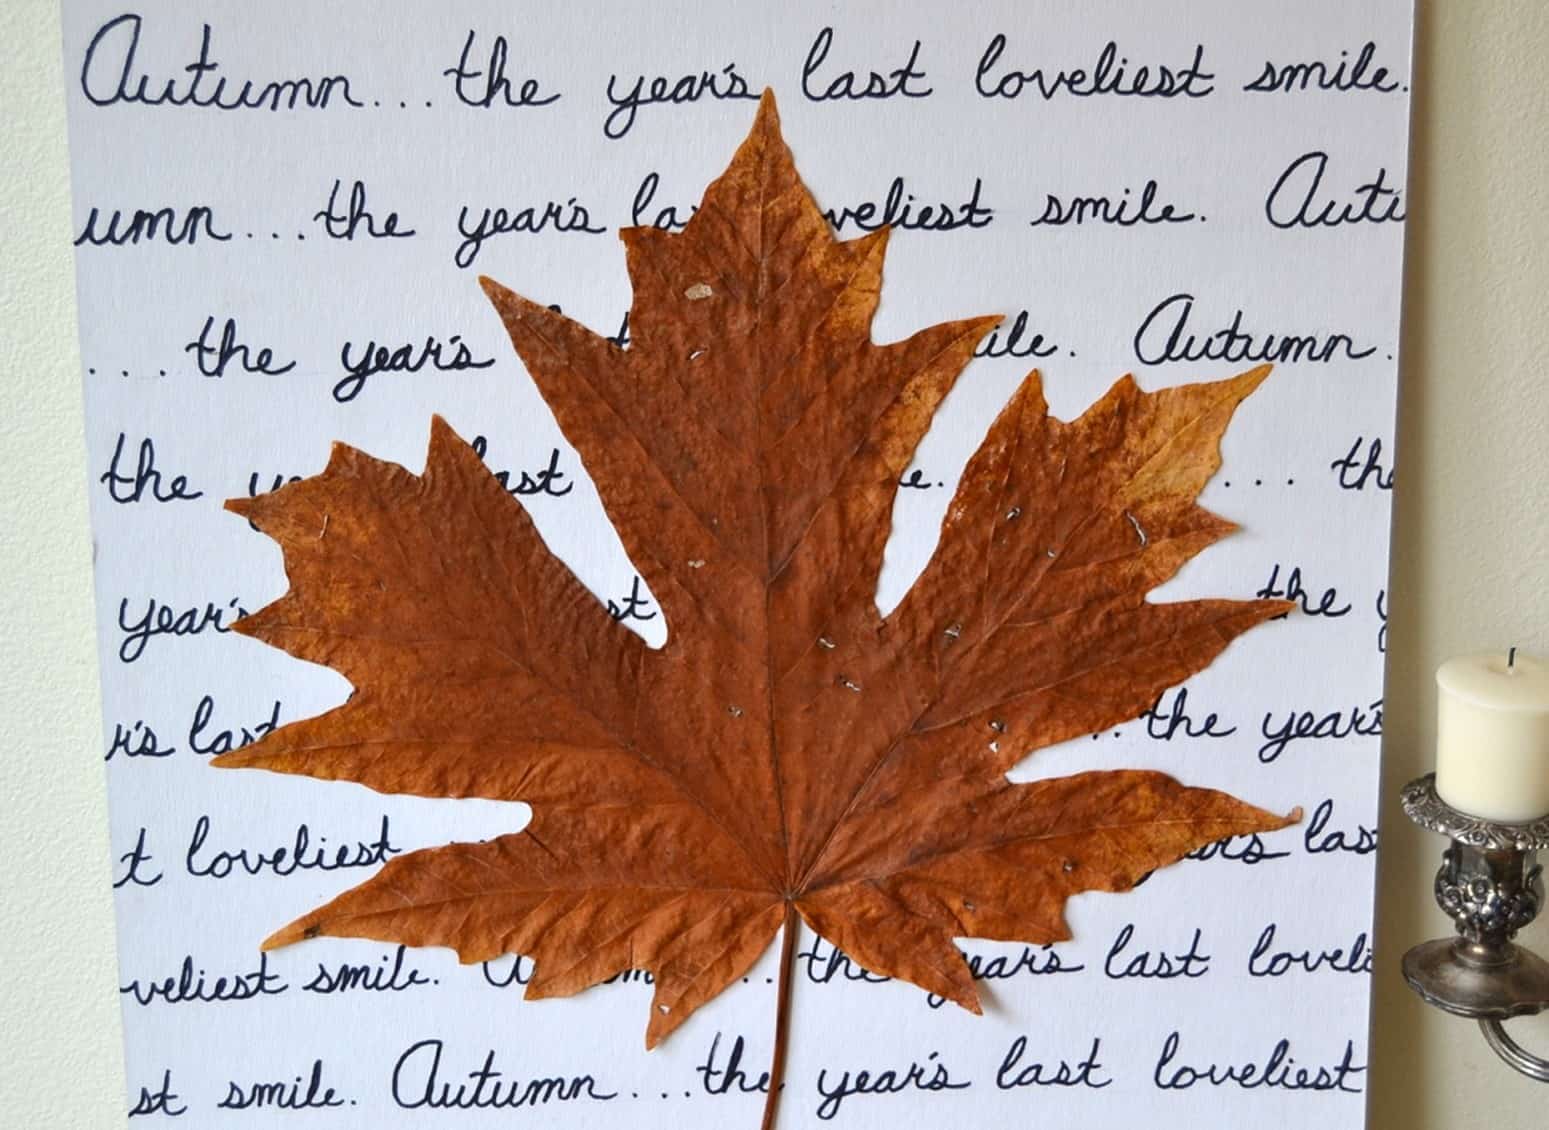 Autumn... the year's last loveliest smile.
umn... the year's la veliest smile. Autu
... the year's ile. Autumn.
the ye ast e. ... the
year's st the y
r's last .. the year's
t loveliest ar's las
veliest smile. A m .. the year's last loveli
st smile. Autumn... the year's last loveliest